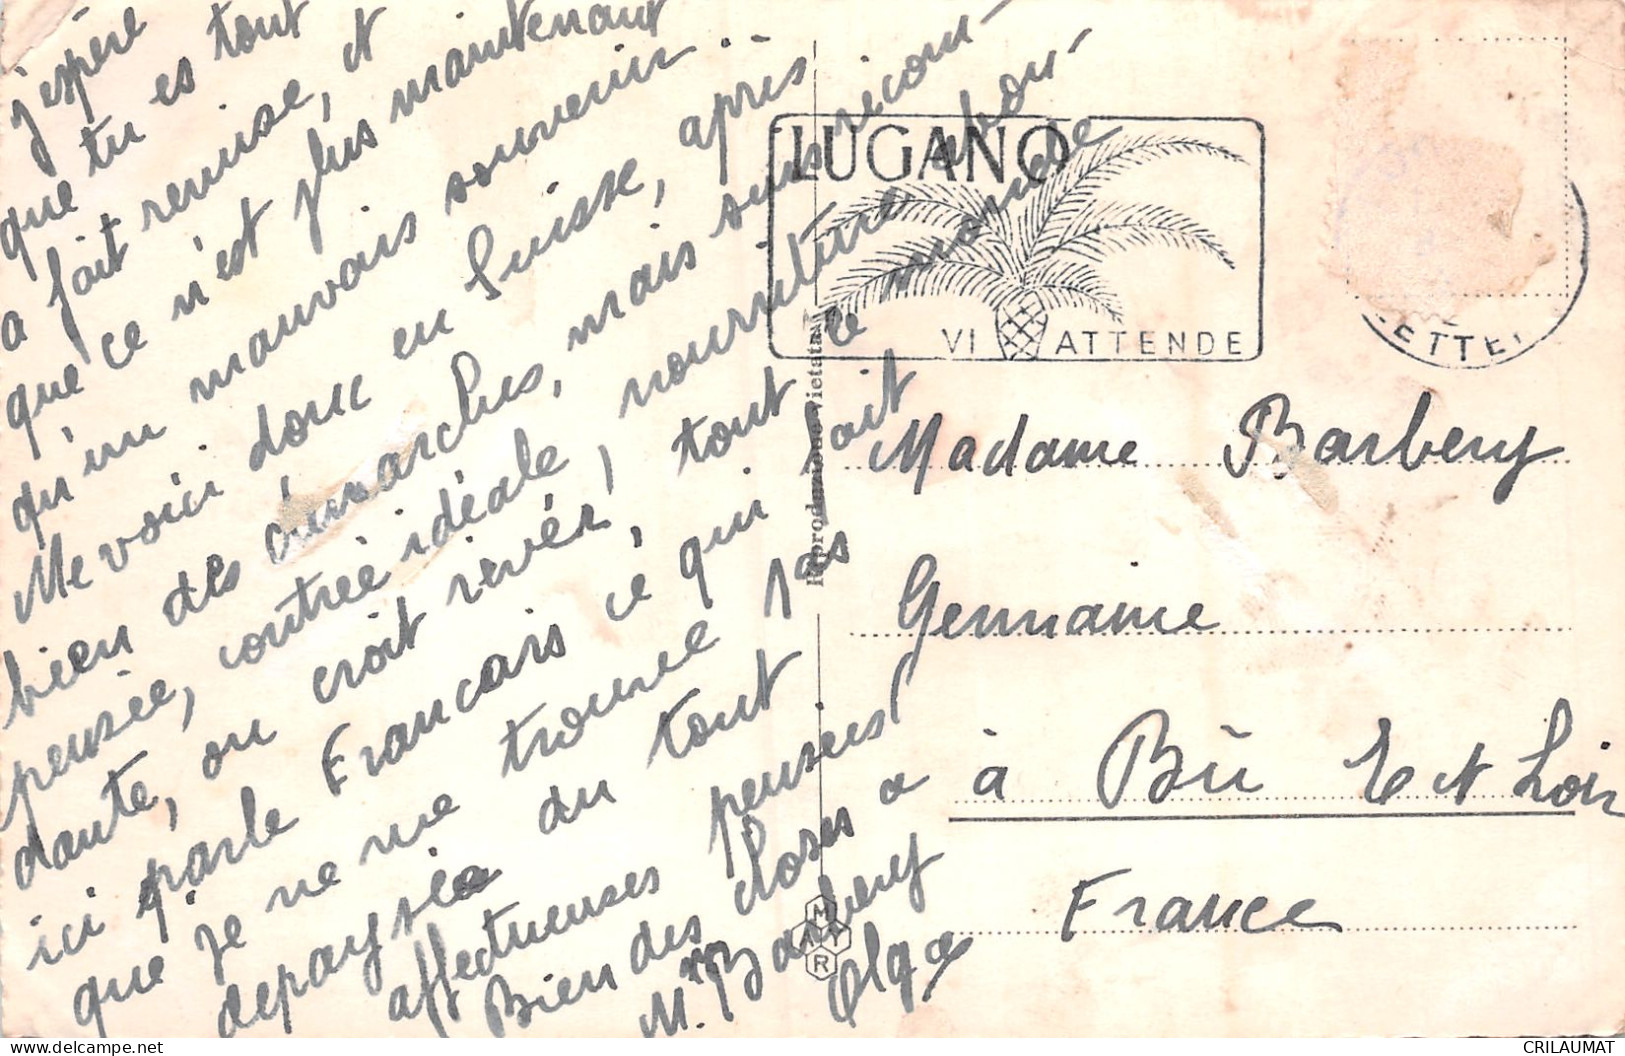 j'espère
que tu es tout
a fait remise, et
que ce n'est plus maintenant
qu'un mauvais souvenir.
Me voici donc en Suisse, après
bien des démarches, mais suis récom-
pensée, contrée idéale, nourriture abon-
dante, on croit rêver, tout le monde
ici parle Francais ce qui fait
que je ne me trouve pas
depaysée du tout
affectueuses pensées
Bien des choses a
M. Barbery
Olga
LUGANO
VI ATTENDE
LETTE
Madame Barbery
Germaine
à Bû E et Loir
France
MAYR
CRILAUMAT